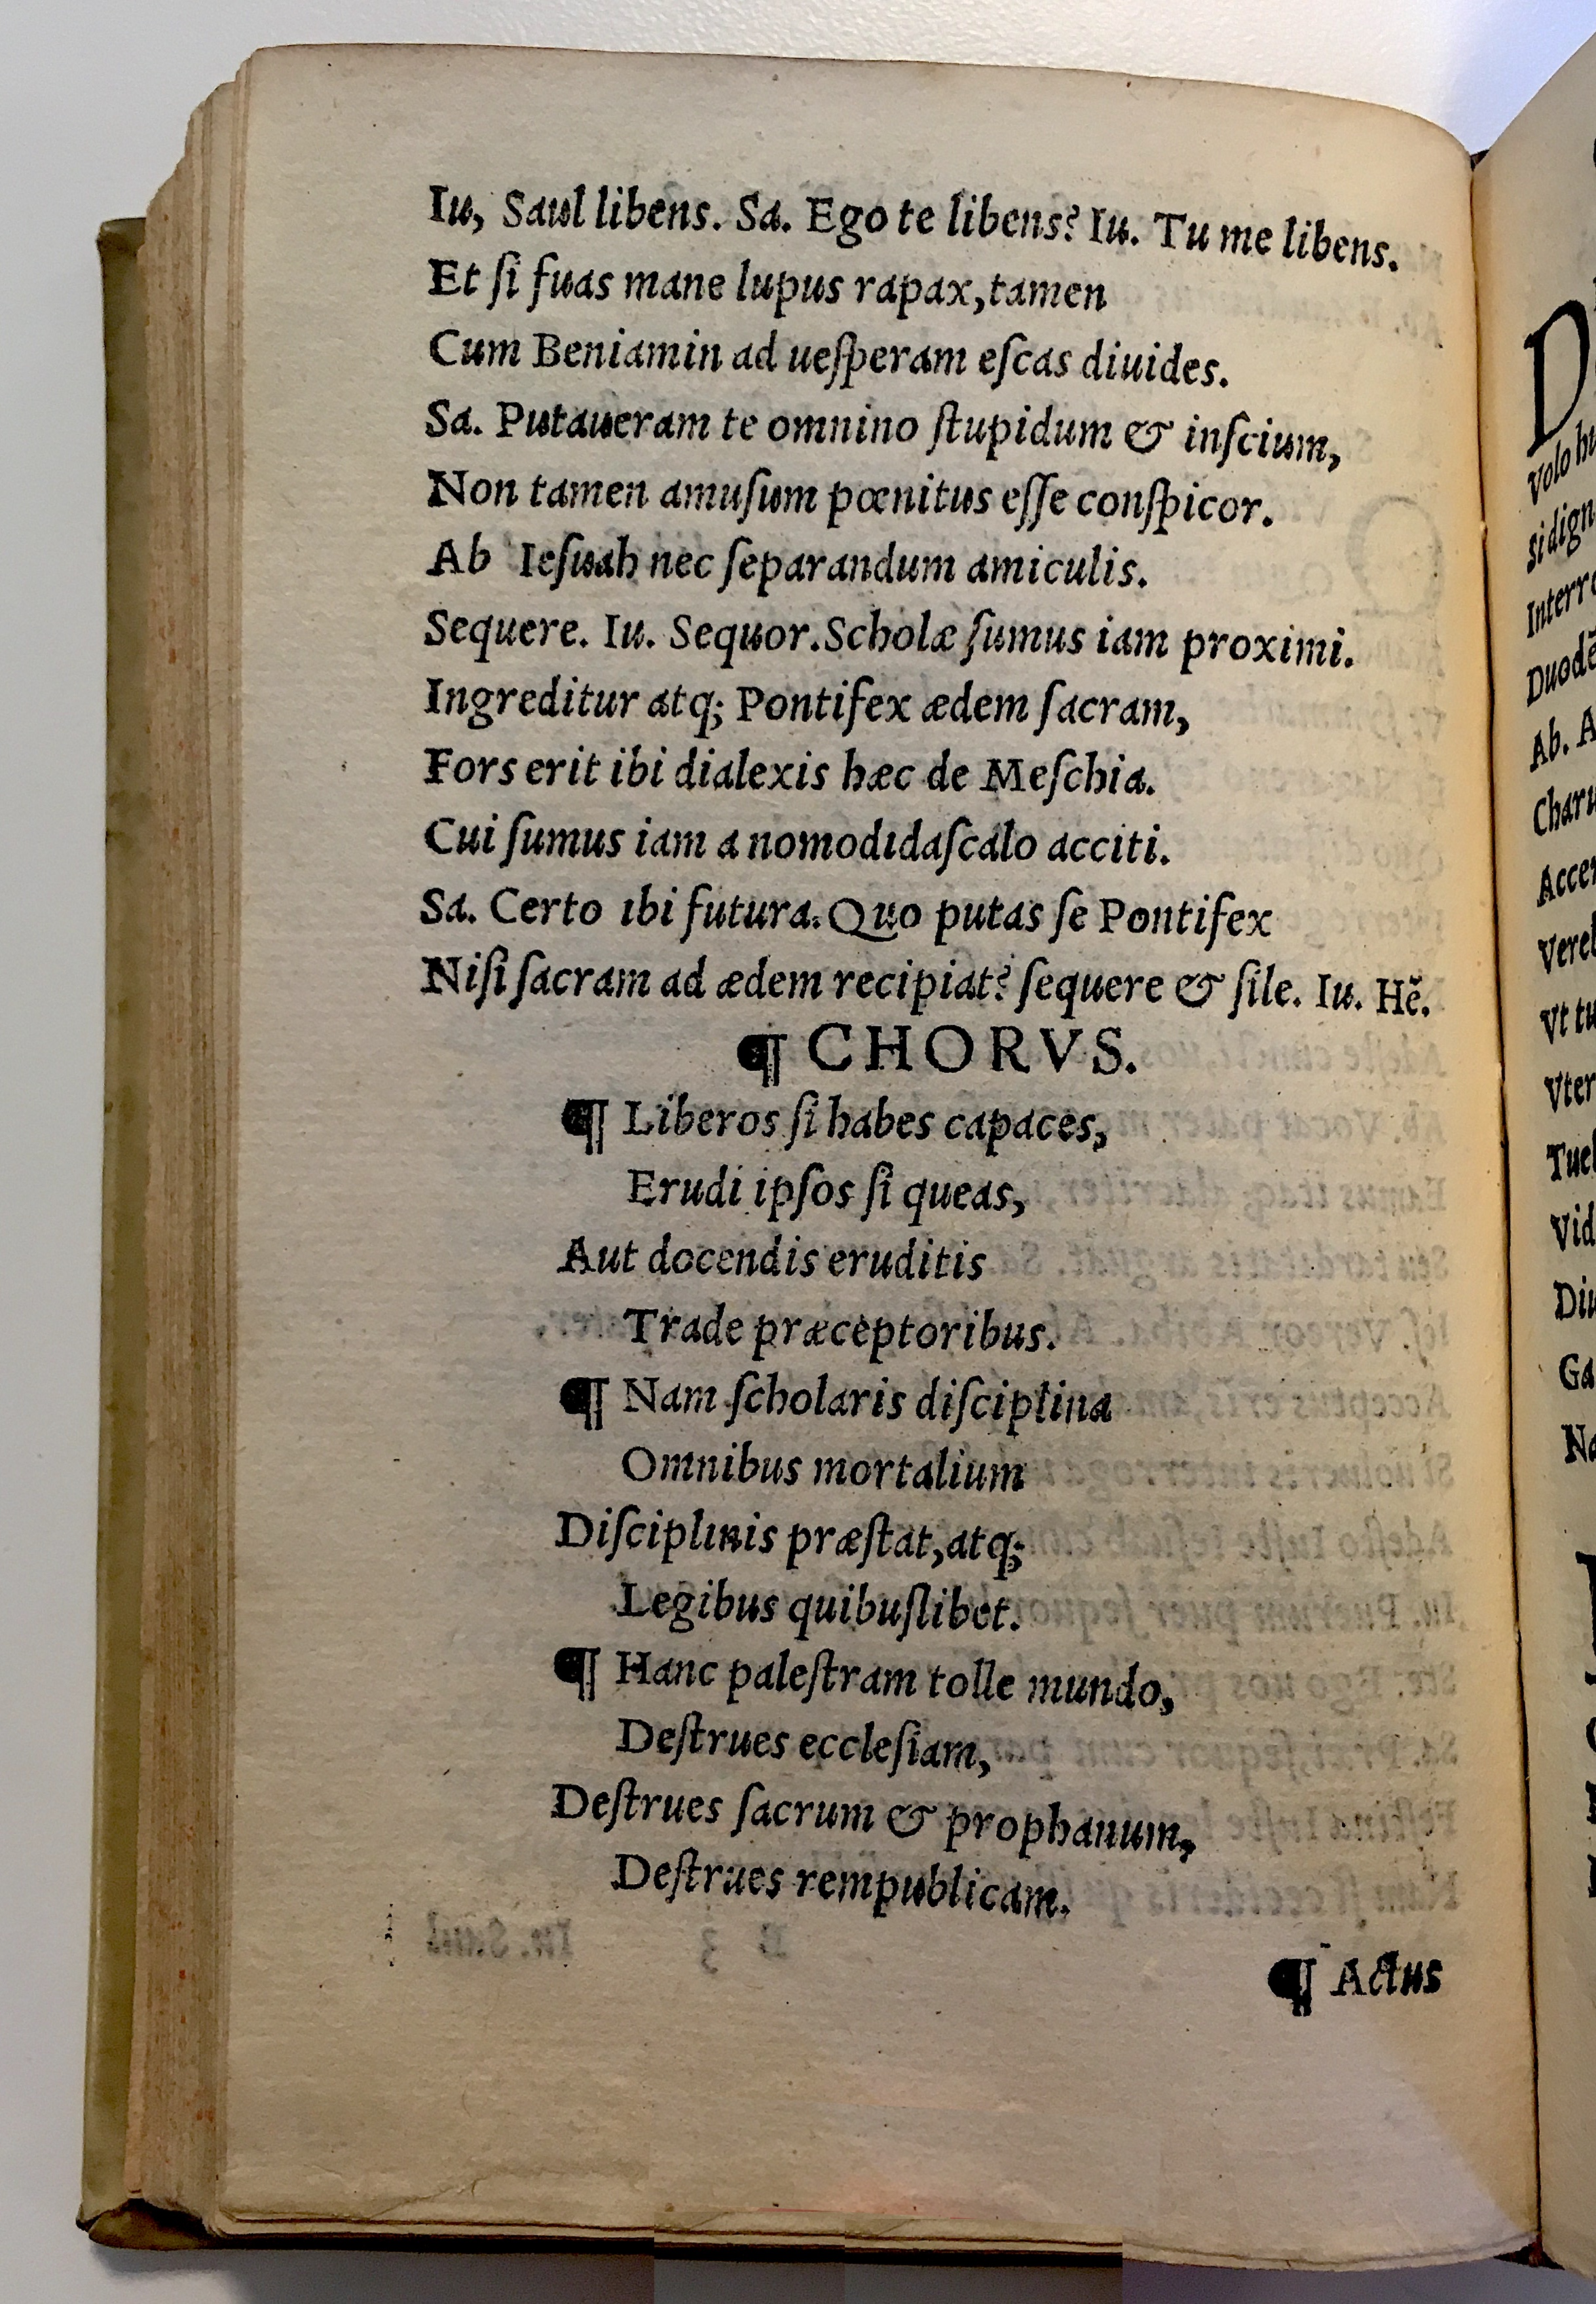 Iu, Saul libens. Sa. Ego te libens? Iu. Tu me libens.
Et ſi fuas mane lupus rapax,tamen
Cum Beniamin ad ueſperam eſcas diuides.
Sa. Putaueram te omnino ſtupidum & inſcium,
Non tamen amuſum pœnitus eſſe conſpicor.
Ab Ieſuah nec ſeparandum amiculis.
Sequere. Iu. Sequor.Scholæ ſumus iam proximi.
Ingreditur atq; Pontifex ædem ſacram,
Fors erit ibi dialexis hæc de Meſchia.
Cui ſumus iam a nomodidaſcalo acciti.
Sa. Certo ibi futura.Quo putas ſe Pontifex
Niſi ſacram ad ædem recipiat? ſequere & ſile. Iu. Hẽ.
¶ CHORVS.
¶ Liberos ſi habes capaces,
Erudi ipſos ſi queas,
Aut docendis eruditis
Trade præceptoribus.
¶ Nam ſcholaris diſciplina
Omnibus mortalium
Diſciplinis præſtat,atq;
Legibus quibuſlibet.
¶ Hanc paleſtram tolle mundo,
Deſtrues eccleſiam,
Deſtrues ſacrum & prophanum,
Deſtrues rempublicam.
¶ Actus
Volo
Si dign
Interr
Ab. A
Vt tu
Vter
Vid
Ga